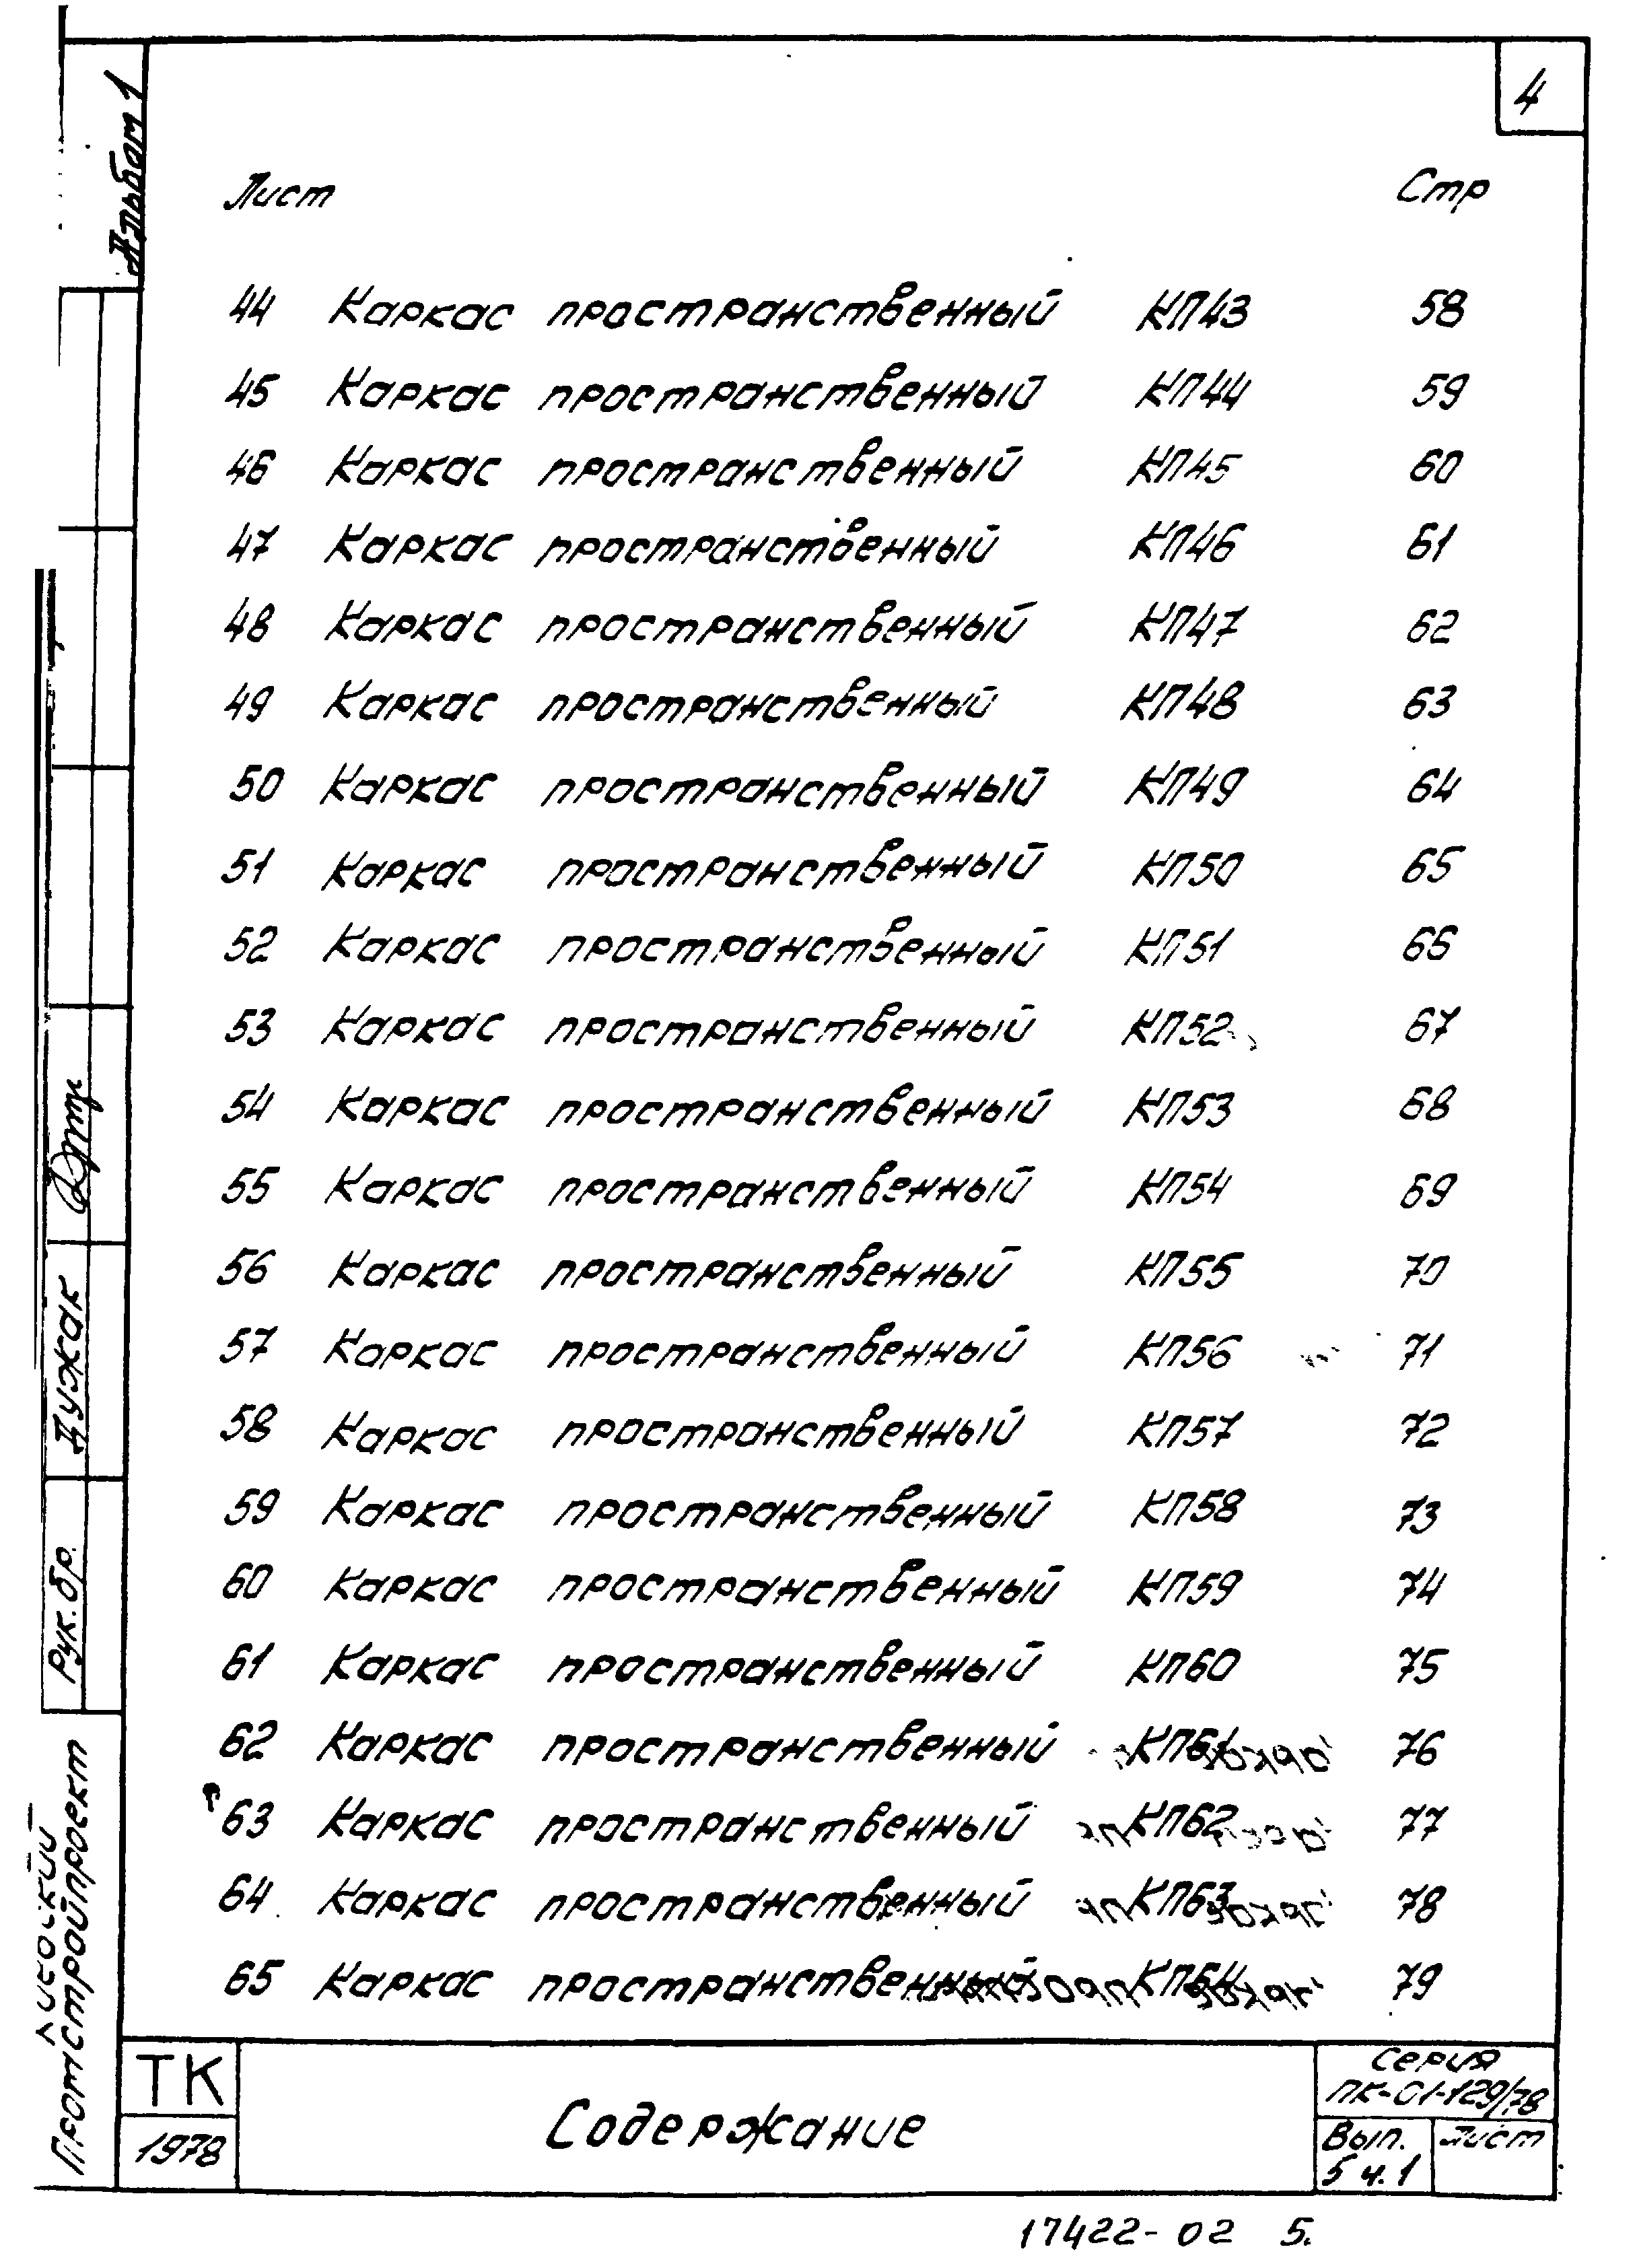 4
Альбом 1
Лист Стр
44 Каркас пространственный КП43 58
45 Каркас пространственный КП44 59
46 Каркас пространственный КП45 60
47 Каркас пространственный КП46 61
48 Каркас пространственный КП47 62
49 Каркас пространственный КП48 63
50 Каркас пространственный КП49 64
51 Каркас пространственный КП50 65
52 Каркас пространственный КП51 66
53 Каркас пространственный КП52 67
54 Каркас пространственный КП53 68
55 Каркас пространственный КП54 69
56 Каркас пространственный КП55 70
57 Каркас пространственный КП56 71
58 Каркас пространственный КП57 72
59 Каркас пространственный КП58 73
60 Каркас пространственный КП59 74
61 Каркас пространственный КП60 75
62 Каркас пространственный КП61 76
63 Каркас пространственный КП62 77
64 Каркас пространственный КП63 78
65 Каркас пространственный КП64 79
Рук. бр.
Промстройпроект
ТК
1978
Содержание
Серия
ПК-01-129/78
Вып.
5 ч.1
Лист
17422-02 5.